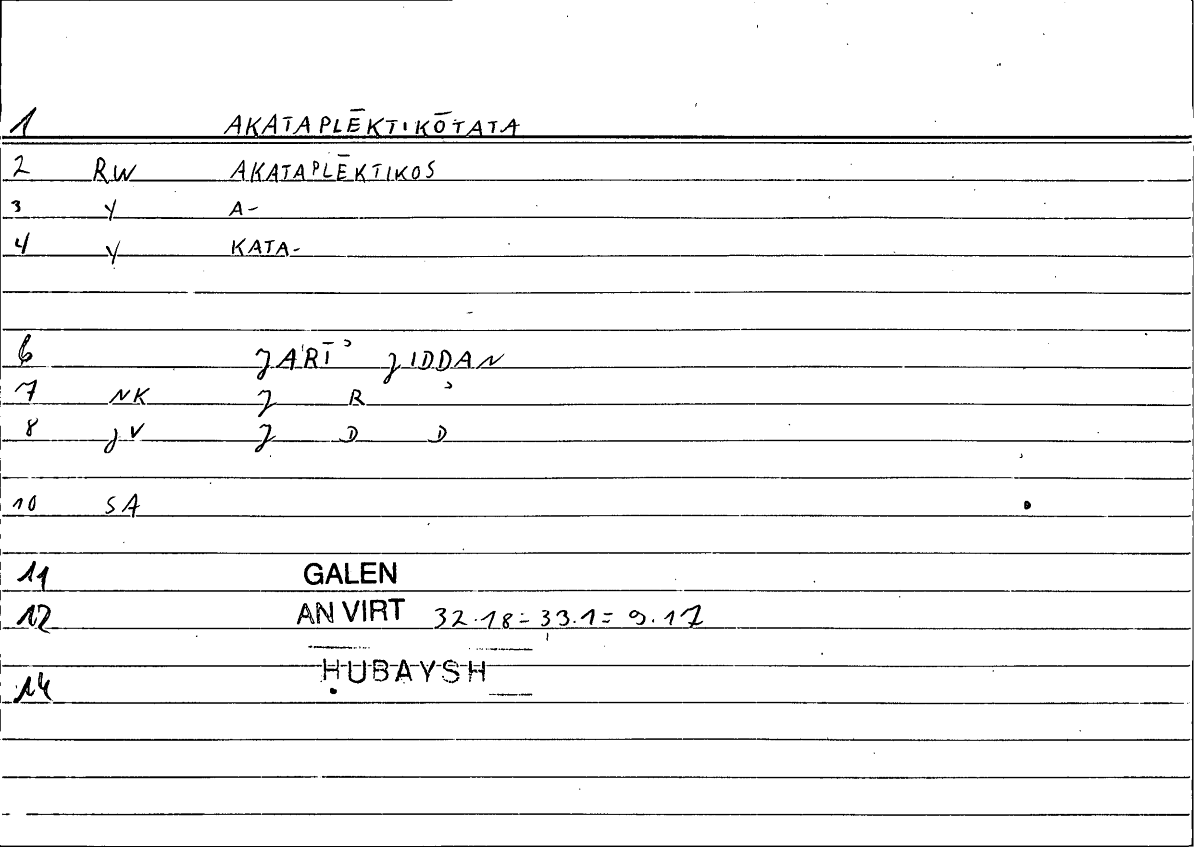 1 AKATAPLĒKTIKŌTATA
2 RW AKATAPLĒKTIKOS
3 Y A-
4 Y KATA-
6 JARĪʾ JIDDAN
7 NK J R ʾ
8 JV J D D
10 SA
11 GALEN
12 AN VIRT 32.18-33.1=9.17
ḤUBAYSH
14